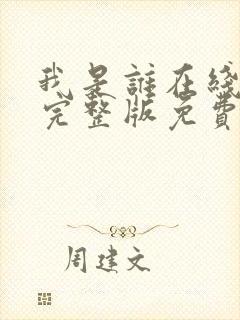 我是誰在綫
完整版免費
周建文